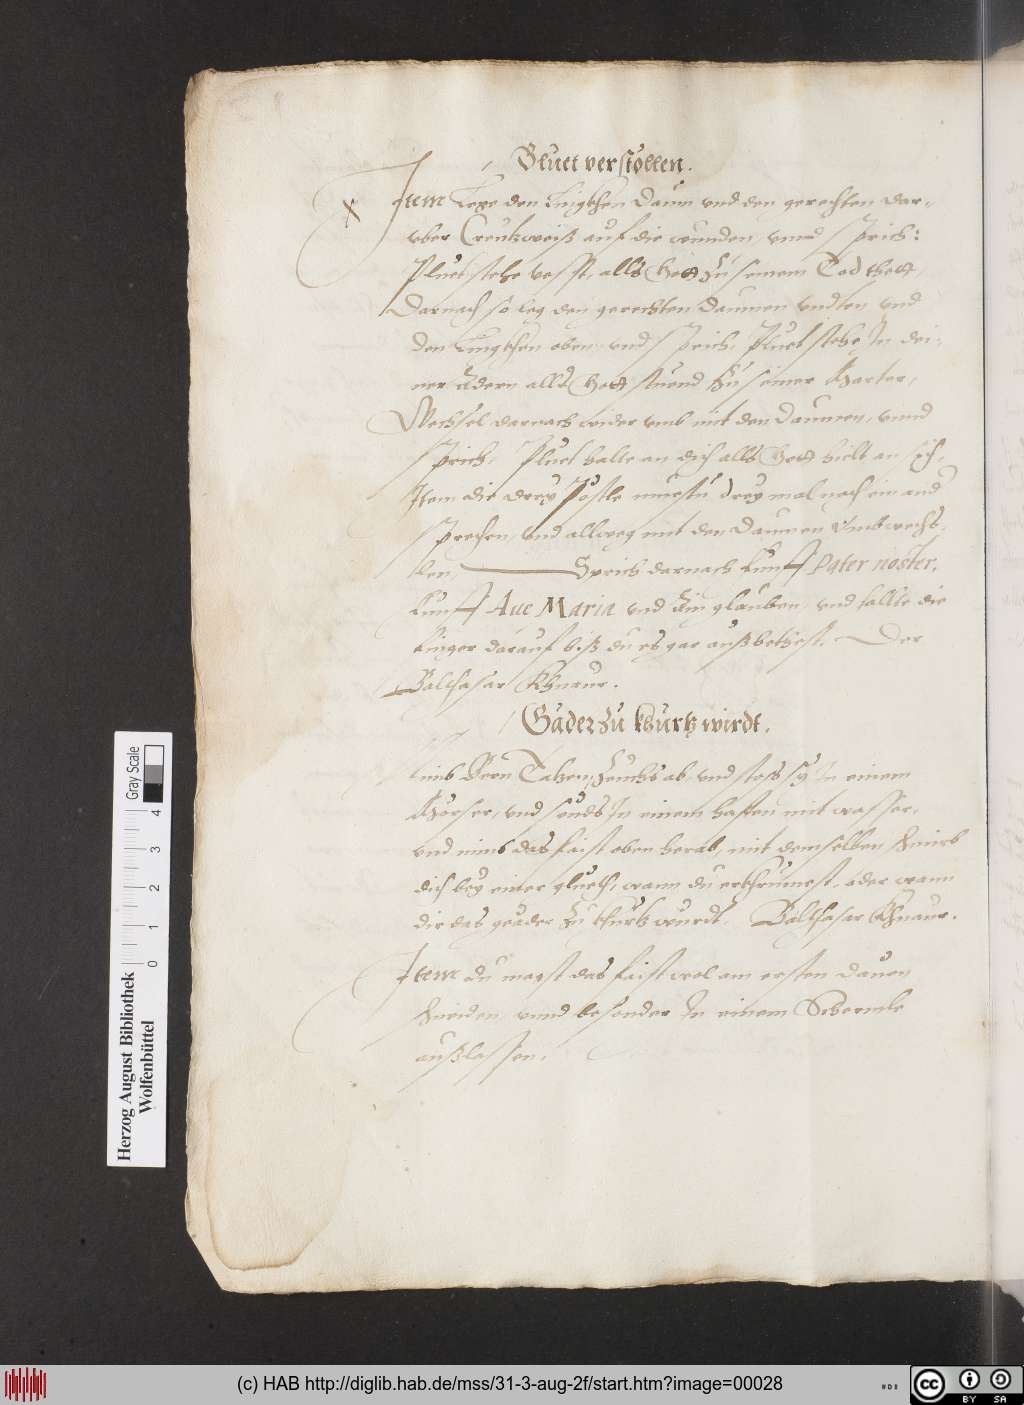 Bluet verstellen.
Item Lege den Lingkhen Daum vnd den gerechten dar-
vber Creutzweiß auf die wunden, vnnd sprich:
Pluet stehe vesst, alls Gott zu seinem Tod thett,
Darnach so leg den gerechten Daumen vndten vnd
den Lingkhen oben, vnd sprich, Pluet stehe In dei-
ner Adern alls Gott stuend zu seiner Marter,
Wechsel darnach wider vmb mit den Daumen, vnnd
sprich, Pluet halte an dich alls Gott hielt an sich,
Item die drey Postle muestu drey mal nach ein and
sprechen, vnd allweg mit den Daumen vmbwechs-
len, Sprich darnach Funff Pater noster,
Funff Aue Maria vnd Ain glauben, vnd hallte die
Finger darauf biß du es gar außbettest. Der
Balthasar Khnaur.
Gäder zu khurtz wirdt.
Nimb Beern Tatzen, zeuchs ab, vnd stoss sy In einem
Mörser, vnd seuds In einem haffen mit wasser,
vnd nimb das faist oben herab, mit demselben schmirb
dich bey einer gluet, wann du erkhrumest, oder wann
dir das geäder zu khurtz wurdt. Balthasar Khnaur.
Item du magst das faist wol am ersten dauon
schneiden, vnnd besonder In einem Schermle
außlassen.
Herzog August Bibliothek
Wolfenbüttel
Gray Scale
0 1 2 3 4
(c) HAB http://diglib.hab.de/mss/31-3-aug-2f/start.htm?image=00028
cc BY SA